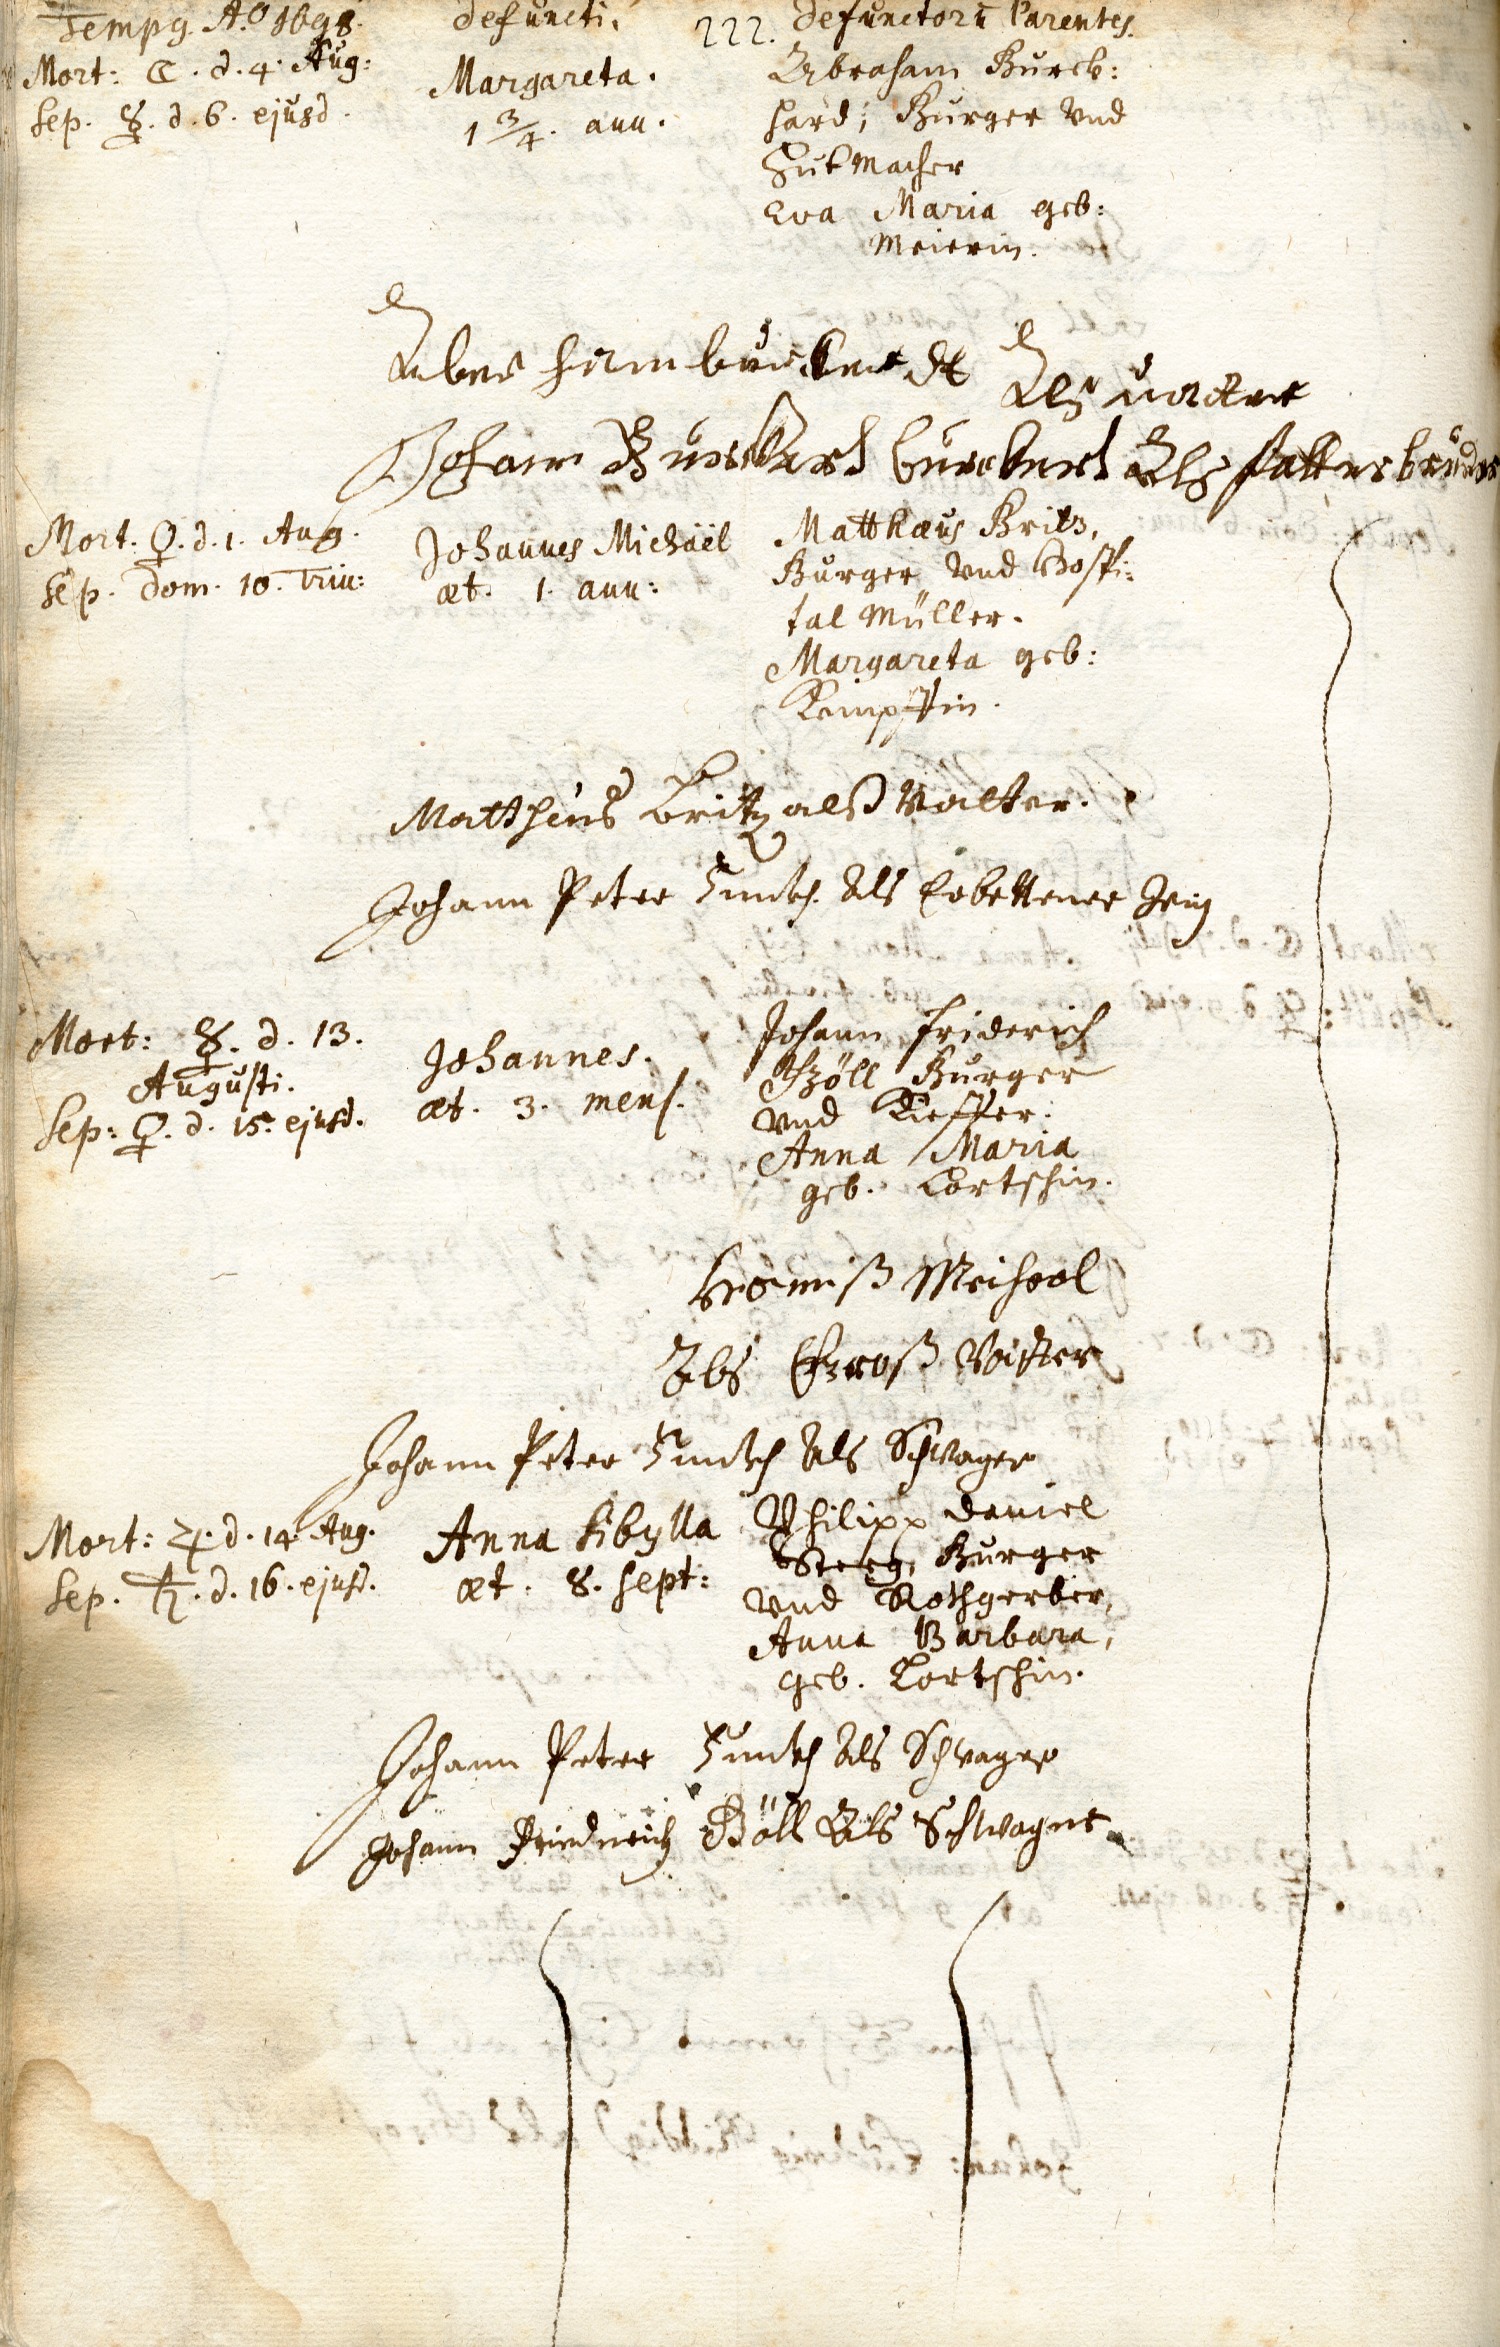 Tempg A.o 1698.
defuncti.
222.
defunctorū Parentes.
Mort: ☾. d. 4. Aug:
Sep. ☿. d. 6. ejusd.
Margareta.
1 3/4. ann.
Abraham Burck-
hard; Burger vnd
Hutmacher
Eva Maria geb:
Meierin.
Als vatter
Johann Burckhard als fatters bruder
Mort. ♀. d. 1. Aug.
Sep. Dom. 10. Trin:
Johannes Michäel
æt. 1. ann:
Matthæus Britz,
Burger vnd Hospi-
tal Müller.
Margareta geb:
Kempffin.
Mattheus Britz alß Vatter.
Johann Peter als Erbettener Zeug
Mort: ☿. d. 13.
Augusti.
Sep: ♀. d. 15. ejusd.
Johannes.
æt. 3. mens.
Johann Friderich
Böll Burger
vnd Kieffer.
Anna Maria
geb. Lortschin.
Als Großvatter
Johann Peter als Schwager
Mort: ♃. d. 14. Aug.
Sep. ♄. d. 16. ejusd.
Anna Sibylla
æt. 8. sept:
Philipp Daniel
Steeg, Burger
vnd Rothgerber,
Anna Barbara,
geb. Lortschin.
Johann Peter als Schwager
Johann Friedreich Böll Als Schwager